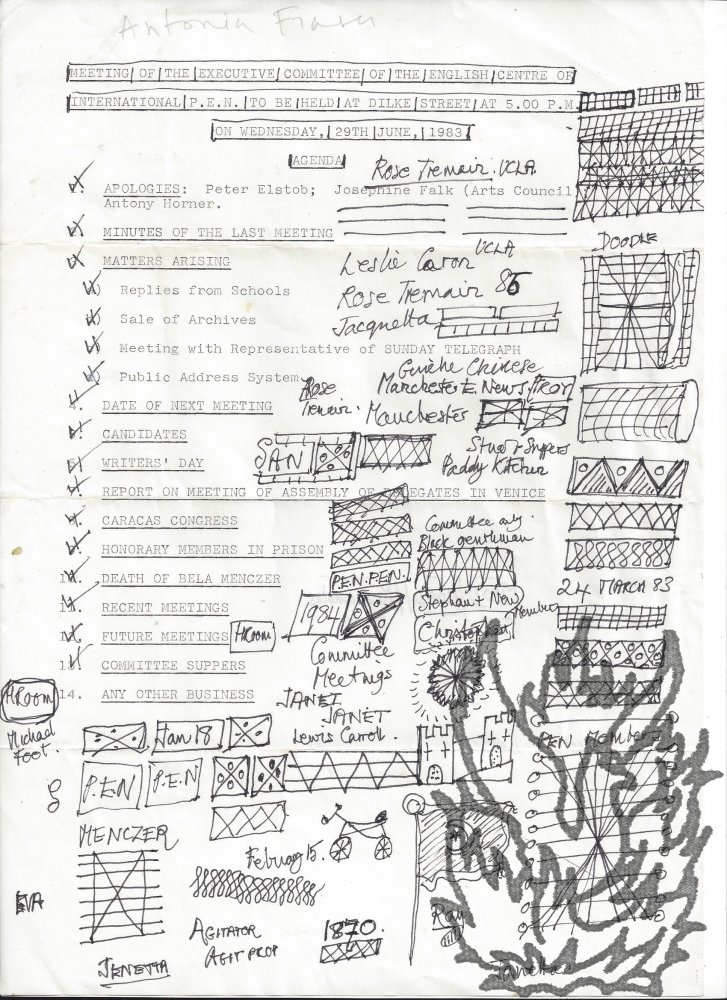 Antonia Fraser
MEETING OF THE EXECUTIVE COMMITTEE OF THE ENGLISH CENTRE OF
INTERNATIONAL P.E.N. TO BE HELD AT DILKE STREET AT 5.00 P.M.
ON WEDNESDAY, 29TH JUNE, 1983
AGENDA
Rose Tremain. UCLA
APOLOGIES: Peter Elstob; Josephine Falk (Arts Council
Antony Horner.
MINUTES OF THE LAST MEETING
DOODLE
UCLA
MATTERS ARISING
Leslie Caron
Replies from Schools
Rose Tremain 86
Sale of Archives
Jacquetta
Meeting with Representative of SUNDAY TELEGRAPH
Chinese
Public Address System
Manchester E. News
Rose
Tremain.
DATE OF NEXT MEETING
Manchester
CANDIDATES
SAN
WRITERS' DAY
Paddy Kitchen
REPORT ON MEETING OF ASSEMBLY OF DELEGATES IN VENICE
CARACAS CONGRESS
Committee only.
Black gentleman
HONORARY MEMBERS IN PRISON
P.E.N. P.E.N.
10. DEATH OF BELA MENCZER
24 MARCH 83
11. RECENT MEETINGS
1984
Stephan + New
Member
12. FUTURE MEETINGS
H Room
Christopher
13. COMMITTEE SUPPERS
Committee
Meetings
14. ANY OTHER BUSINESS
H Room
JANET
JANET
Michael
Foot.
Jan 18
Lewis Carroll.
PEN Members
P.E.N
P.E.N
MENCZER
February 15.
EVA
AGITATOR
AGIT PROP
1870.
Ray
JENETTA
Janetta